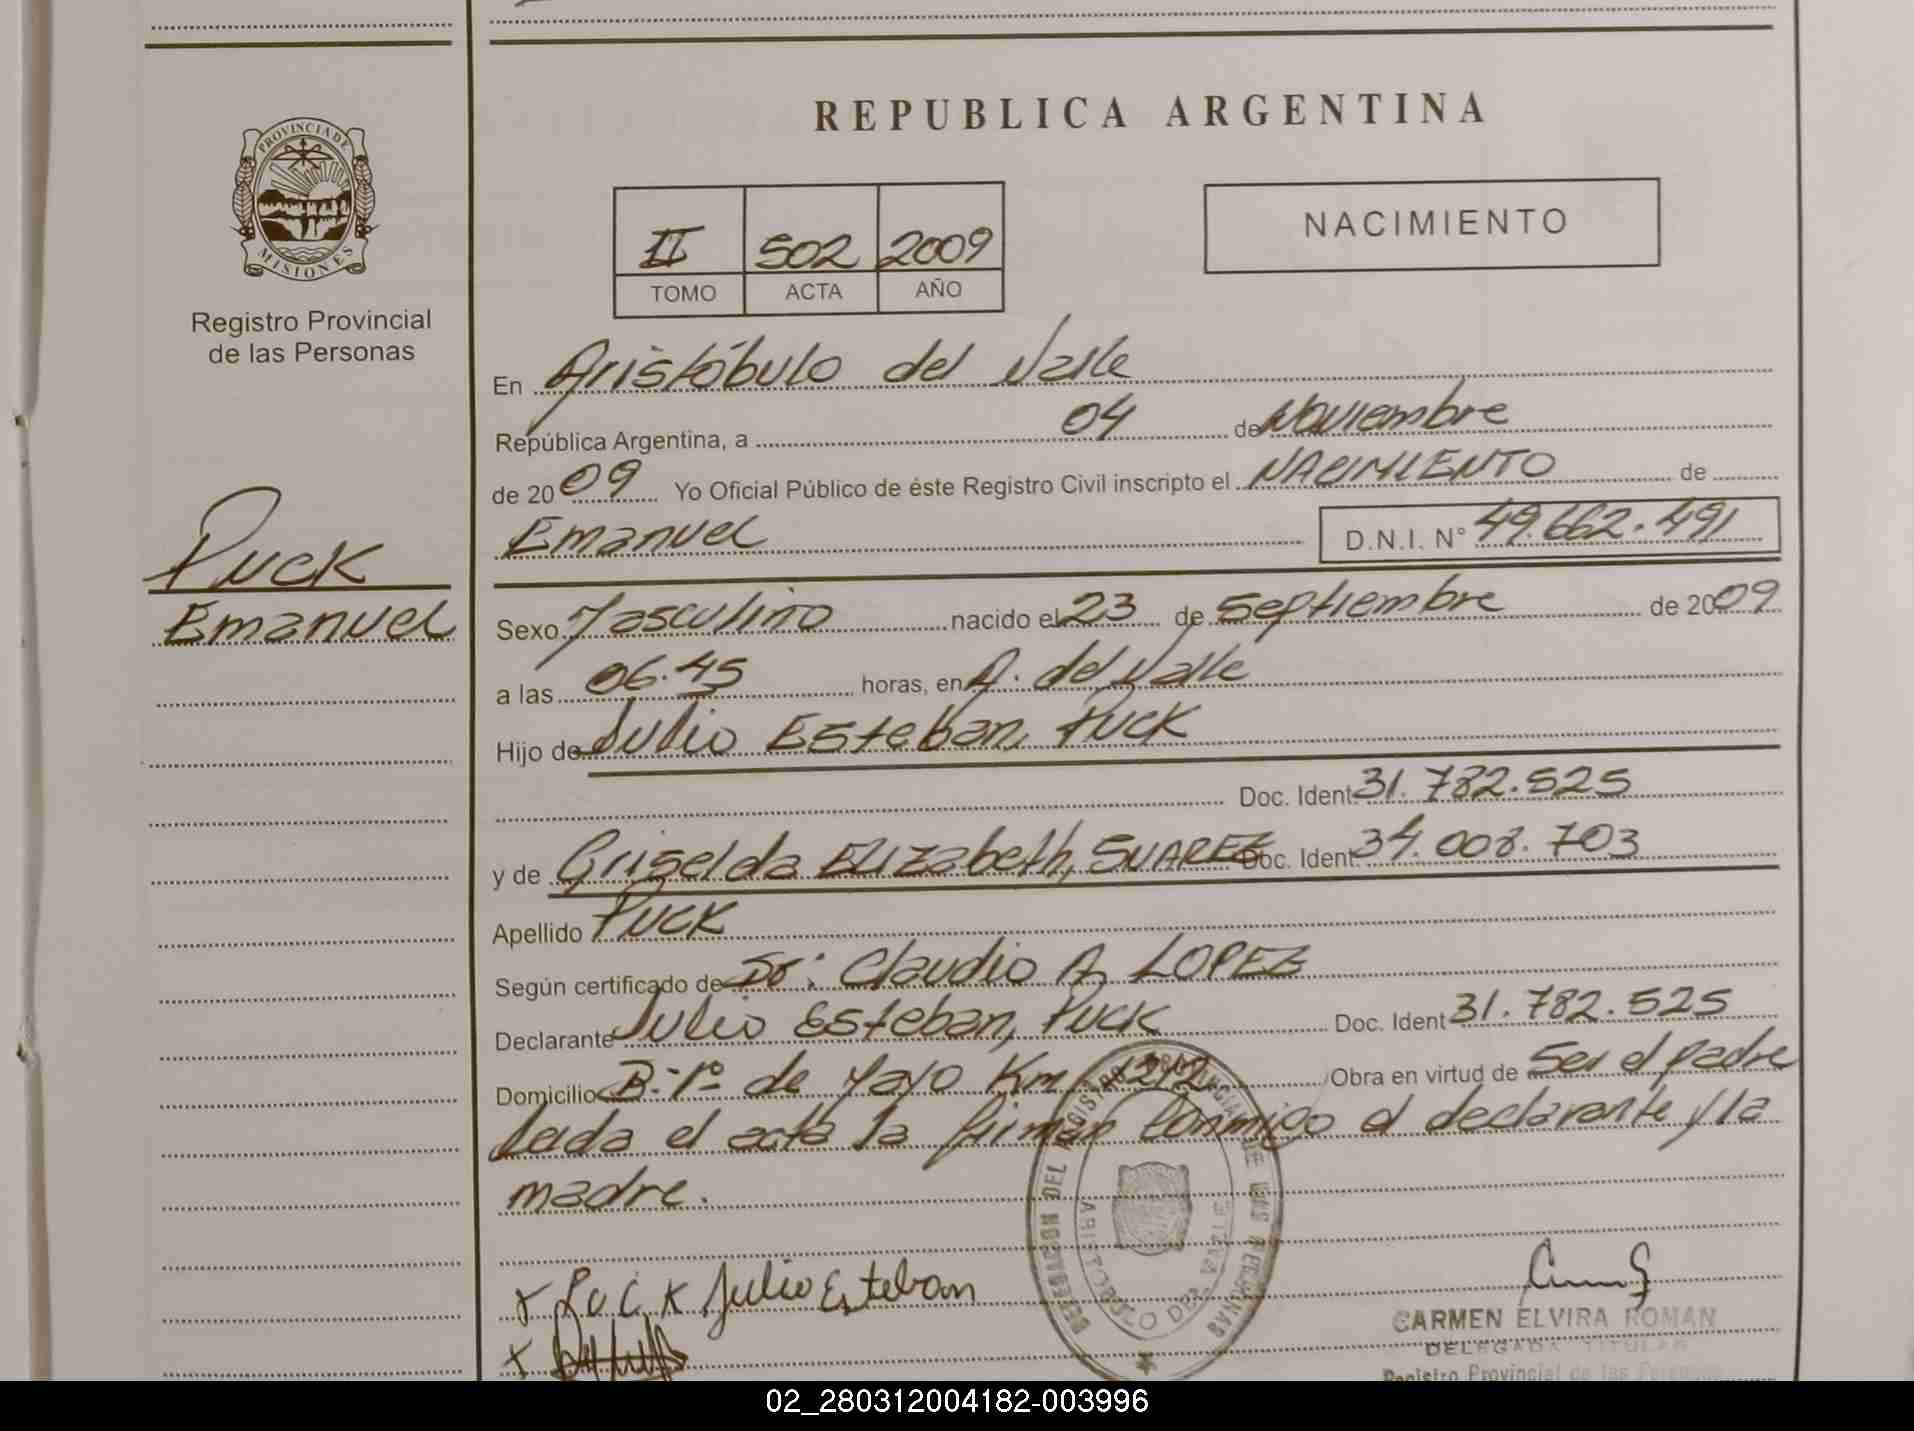 PROVINCIA DE
MISIONES
Registro Provincial
de las Personas
Puck
Emanuel
REPUBLICA ARGENTINA
II 502 2009
TOMO ACTA AÑO
NACIMIENTO
En Aristóbulo del Valle
República Argentina, a 04 de Noviembre
de 2009 Yo Oficial Público de éste Registro Civil inscripto el NACIMIENTO de
Emanuel D.N.I. N° 49.662.491
Sexo Masculino nacido el 23 de Septiembre de 2009
a las 06.45 horas, en A. del Valle
Hijo de Julio Esteban, Puck
Doc. Ident 31.782.525
y de Griselda Elizabeth, SUAREZ Doc. Ident 34.008.703
Apellido Puck
Según certificado de Dr: Claudio A. LOPEZ
Declarante Julio Esteban, Puck Doc. Ident 31.782.525
Domicilio B: 1° de Mayo Km 1212 Obra en virtud de Ser el padre
Leida el acta la firman Conmigo el declarante y la
madre.
DELEGACION DEL REGISTRO PROVINCIAL DE LAS PERSONAS
ARISTOBULO DEL VALLE
x Puck Julio Esteban
x
CARMEN ELVIRA ROMAN
DELEGADA TITULAR
Registro Provincial de las Personas
02_280312004182-003996